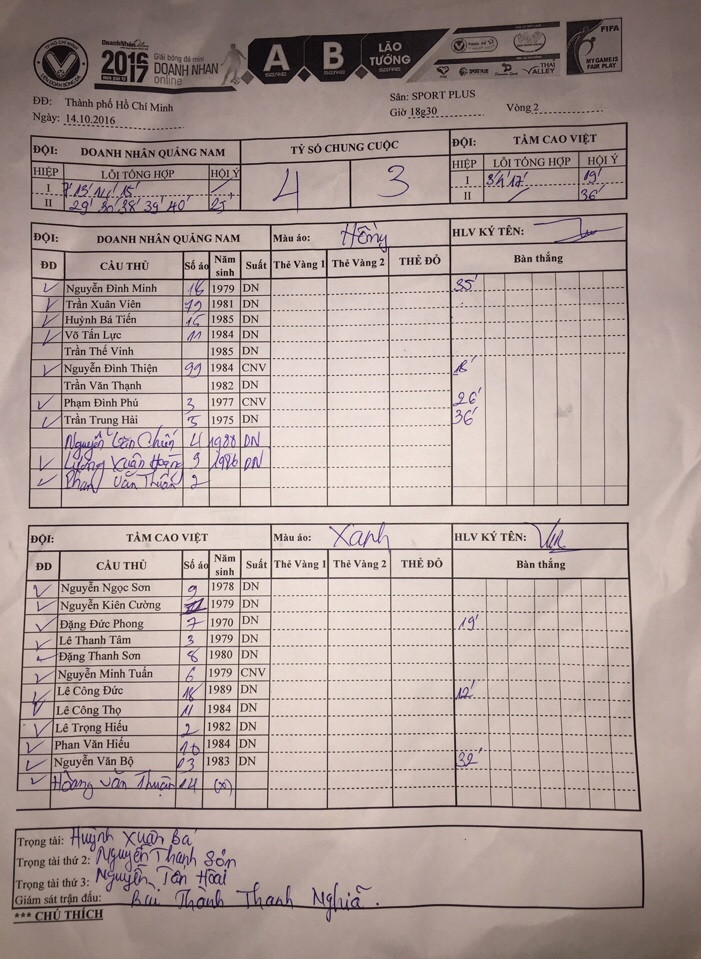 TP HỒ CHÍ MINH
LIÊN ĐOÀN BÓNG ĐÁ
DoanhNhân
2016 2017
Giải bóng đá mini
DOANH NHAN
online
A
B
LÃO TƯỚNG
THAI VALLEY
FIFA
MY GAME IS FAIR PLAY
ĐĐ: Thành phố Hồ Chí Minh
Sân: SPORT PLUS
Ngày: 14.10.2016 Giờ 18g30 Vòng 2
ĐỘI: DOANH NHÂN QUẢNG NAM TỶ SỐ CHUNG CUỘC ĐỘI: TẦM CAO VIỆT
HIỆP LỖI TỔNG HỢP HỘI Ý 4 3 HIỆP LỖI TỔNG HỢP HỘI Ý
I 7' 13' 14' 15' I 3' 4' 17' 19'
II 29' 30' 38' 39' 40' 25' II 36'
ĐỘI: DOANH NHÂN QUẢNG NAM Màu áo: Hồng HLV KÝ TÊN:
ĐD CẦU THỦ Số áo Năm sinh Suất Thẻ Vàng 1 Thẻ Vàng 2 THẺ ĐỎ Bàn thắng
Nguyễn Đình Minh 1979 DN 35'
Trần Xuân Viên 79 1981 DN
Huỳnh Bá Tiến 15 1985 DN
Võ Tấn Lực 11 1984 DN
Trần Thế Vinh 1985 DN
Nguyễn Đình Thiện 99 1984 CNV 18'
Trần Văn Thạnh 1982 DN
Phạm Đình Phú 3 1977 CNV 26'
Trần Trung Hải 5 1975 DN 36'
Nguyễn Chiến 4 1988 DN
Lương Xuân Hoàng 9 1986 DN
Phan Văn Thuấn 2
ĐỘI: TẦM CAO VIỆT Màu áo: Xanh HLV KÝ TÊN:
ĐD CẦU THỦ Số áo Năm sinh Suất Thẻ Vàng 1 Thẻ Vàng 2 THẺ ĐỎ Bàn thắng
Nguyễn Ngọc Sơn 9 1978 DN
Nguyễn Kiên Cường 1979 DN
Đặng Đức Phong 7 1970 DN 19'
Lê Thanh Tâm 3 1979 DN
Đặng Thanh Sơn 8 1980 DN
Nguyễn Minh Tuấn 6 1979 CNV
Lê Công Đức 18 1989 DN 12'
Lê Công Thọ 11 1984 DN
Lê Trọng Hiếu 2 1982 DN
Phan Văn Hiếu 10 1984 DN
Nguyễn Văn Bộ 23 1983 DN 32'
Hoàng Văn Thuận 14 (x)
Trọng tài: Huỳnh Xuân Bá
Trọng tài thứ 2: Nguyễn Thanh Sơn
Trọng tài thứ 3: Nguyễn Tấn Hoài
Giám sát trận đấu: Bùi Thành Thanh Nghiã.
*** CHÚ THÍCH